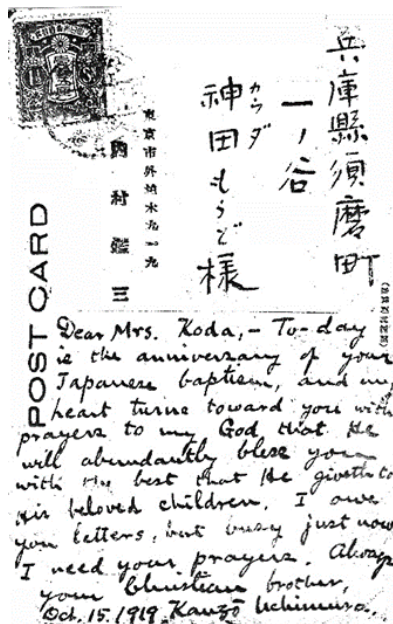 兵庫縣須磨町
一ノ谷
カウダ
神田もうど様
東京市外柏木九一九
内村鑑三
POST CARD
Dear Mrs. Koda,- To-day
is the anniversary of your
Japanese baptism, and my
heart turns toward you with
prayers to my God that He
will abundantly bless you
with the best that He giveth to
His beloved children. I owe
you letters, but busy just now
I need your prayers. Always
your Christian brother,
Oct. 15. 1919. Kanzō Uchimura.